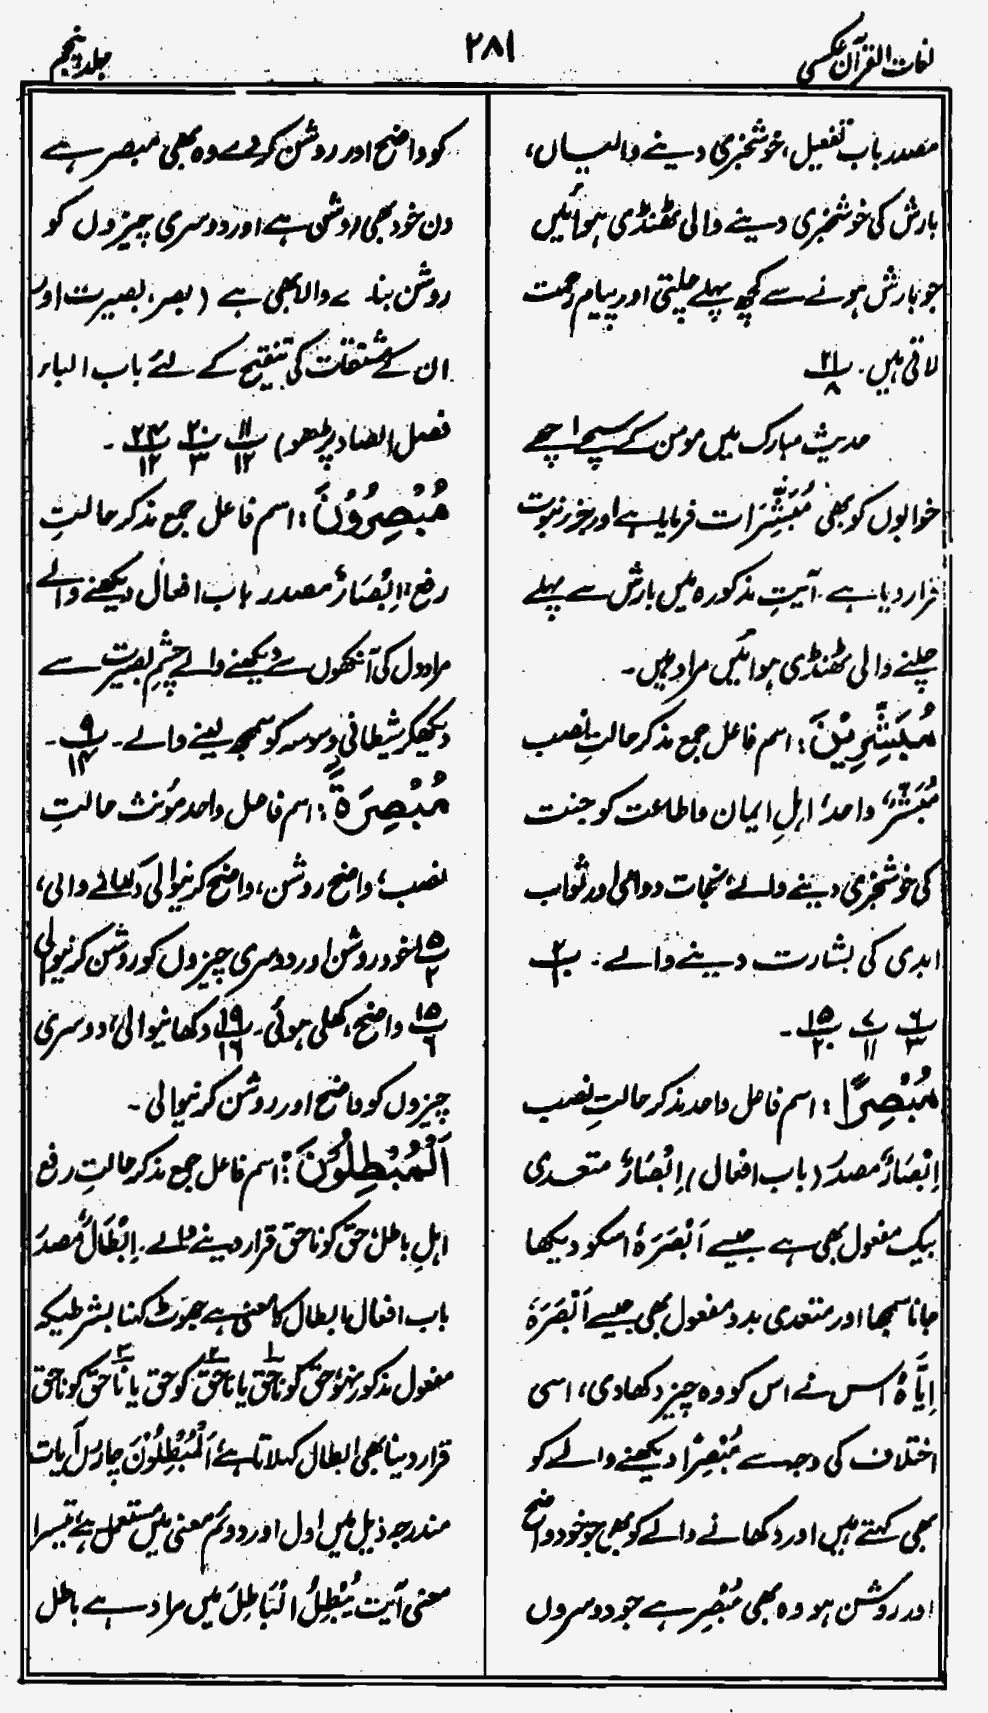 لغات القرآن عکسی
۲۸۱
جلد پنجم
مصدر باب تفعیل، خوشخبری دینے والیاں،
بارش کی خوشخبری دینے والی ٹھنڈی ہوائیں
جو بارش ہونے سے کچھ پہلے چلتی اور پیام رحمت
لاتی ہیں۔ پ۲۱/۸
حدیث مبارک میں مومن کے سچے اچھے
خوابوں کو بھی مُبَشِّرَات فرمایا ہے اور جزر نبوت
قرار دیا ہے۔ آیتِ مذکورہ میں بارش سے پہلے
چلنے والی ٹھنڈی ہوائیں مراد ہیں۔
مُبَشِّرِیْنَ: اسم فاعل جمع مذکر حالتِ نصب
مُبَشِّرٌ واحد، اہلِ ایمان و اطاعت کو جنت
کی خوشخبری دینے والے، نجات دوامی اور ثواب
ابدی کی بشارت دینے والے۔ پ۲
پ۶/۳ پ۷/۱۱ پ۱۵/۲۰۔
مُبْصِرًا: اسم فاعل واحد مذکر حالتِ نصب
اِبْصَارٌ مصدر (باب افعال) اِبْصَارٌ متعدی
بیک مفعول بھی ہے جیسے اَبْصَرَہٗ اسکو دیکھا
جانا سمجھا اور متعدی بدو مفعول بھی جیسے اَبْصَرَہٗ
اِیَّاہُ اس نے اس کو وہ چیز دکھادی، اسی
اختلاف کی وجہ سے مُبْصِرًا دیکھنے والے کو
بھی کہتے ہیں اور دکھانے والے کو بھی جو خود واضح
اور روشن ہو وہ بھی مُبْصِر ہے جو دوسروں
کو واضح اور روشن کردے وہ بھی مبصر ہے
دن خود بھی روشن ہے اور دوسری چیزوں کو
روشن بنانے والا بھی ہے (بصر، بصیرت اور
ان کے مشتقات کی تنقیح کے لئے باب الباء
فصل الصاد پڑھو) پ۱۱/۱۲ پ۲۰/۳ پ۲۴/۱۲۔
مُبْصِرُوْنَ: اسم فاعل جمع مذکر حالتِ
رفع، اِبْصَارٌ مصدر باب افعال دیکھنے والے
مراد دل کی آنکھوں سے دیکھنے والے چشمِ بصیرت سے
دیکھ کر شیطانی وسوسہ کو سمجھ لینے والے۔ پ۹/۱۴۔
مُبْصِرَۃً: اسم فاعل واحد مؤنث حالتِ
نصب، واضح روشن، واضح کرنیوالی دکھانے والی،
پ۱۵/۲ خود روشن اور دوسری چیزوں کو روشن کرنیوالی
پ۱۵/۶ واضح، کھلی ہوئی۔ پ۱۹/۱۶ دکھانیوالی، دوسری
چیزوں کو واضح اور روشن کرنیوالی۔
اَلْمُبْطِلُوْنَ: اسم فاعل جمع مذکر حالتِ رفع
اہلِ باطل، حق کو ناحق قرار دینے والے۔ اِبْطَالٌ مصدر
باب افعال، ابطال کا معنی ہے جھوٹ کہنا بشرطیکہ
مفعول مذکور نہو، حق کو ناحق یا ناحق کو حق یا ناحق کو ناحق
قرار دینا بھی ابطال کہلاتا ہے، اَلْمُبْطِلُوْنَ چاروں آیات
مندرجہ ذیل میں اول اور دوئم معنی میں مستعمل ہے، تیسرا
معنی آیت یُبْطِلُ الْبَاطِلَ میں مراد ہے باطل